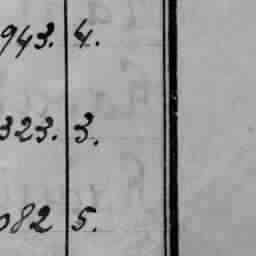 943. 4.
323. 3.
082 5.